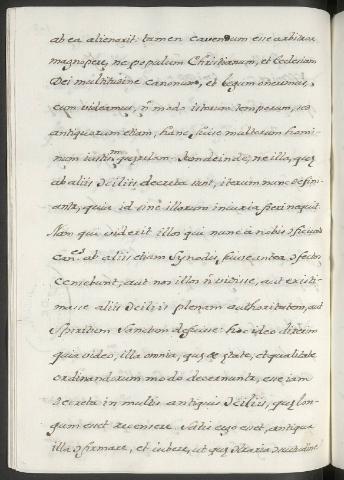 ab ea alienarit: tamen cavendum esse arbitror
magnopere, ne populum Christianum, et Ecclesiam
Dei multitudine canonum, et legum oneremus,
cum videamus, modo istorum temporum, sed
antiquorum etiam, hanc fuisse multorum homi-
num iustis.m querelam: non deinde, ne illa, quę
ab aliis ɔciliis decreta sunt, iterum nunc defini-
antr, quia id sine illorum iniuria fieri nequit.
Nam qui viderit illos qui nunc à nobis
Can.es ab aliis etiam Synodis fuisse antea ɔfectos
censebunt, aut nos illos ñ vidisse, aut existi-
masse aliis ɔciliis plenam authoritatem, aut
Spiritum Sanctum defuisse: hoc ideo dixerim
quia video, illa omnia, quę de ętate, et qualitate
ordinandorum modo decernuntr, esse iam
decreta in multis antiquis ɔciliis, quę lon-
gum esset recensere. Satis ergo esset, antiqua
illa ɔfirmare, et iubere, ut quę ɔtraria ɔsuetudine